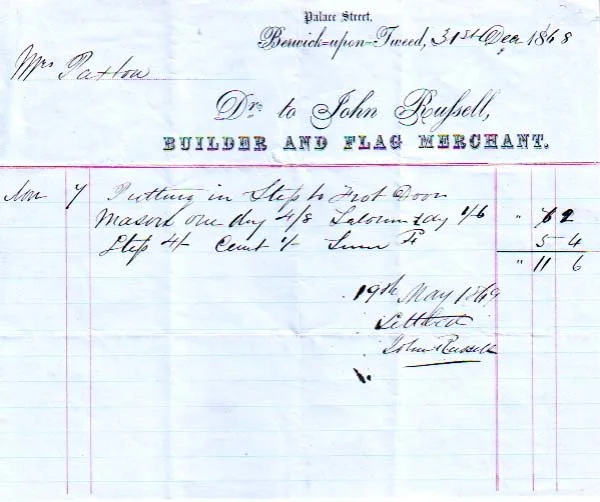 Palace Street.
Berwick=upon=Tweed, 31st Decr 1868
Mrs Paxton
Dr. to John Russell,
BUILDER AND FLAG MERCHANT.
Nov 7 Putting in Step to Frot Door
Mason one day 4/8 Laborer ½ day 1/6 " 6 2
Step 4/ Cemt 1/ 5 4
" 11 6
19th May 1869
Settled
John Russell